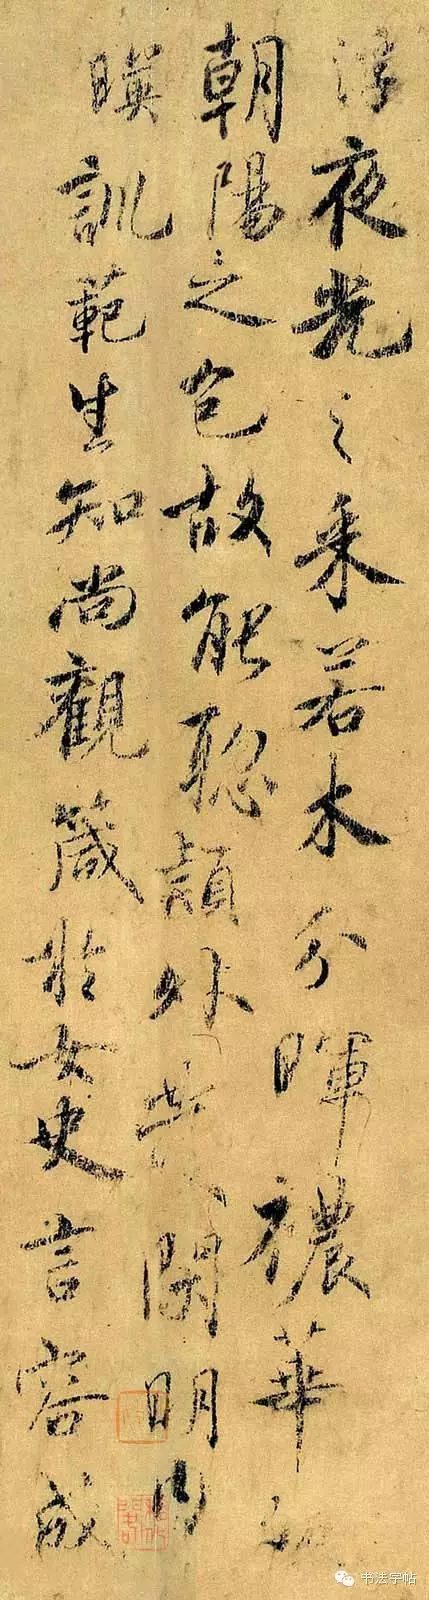 浮夜光之采若木分暉穠華
朝陽之色故能聪頴外發閑明内
暎訓範生知尚觀箴於女史言容成
书法字帖